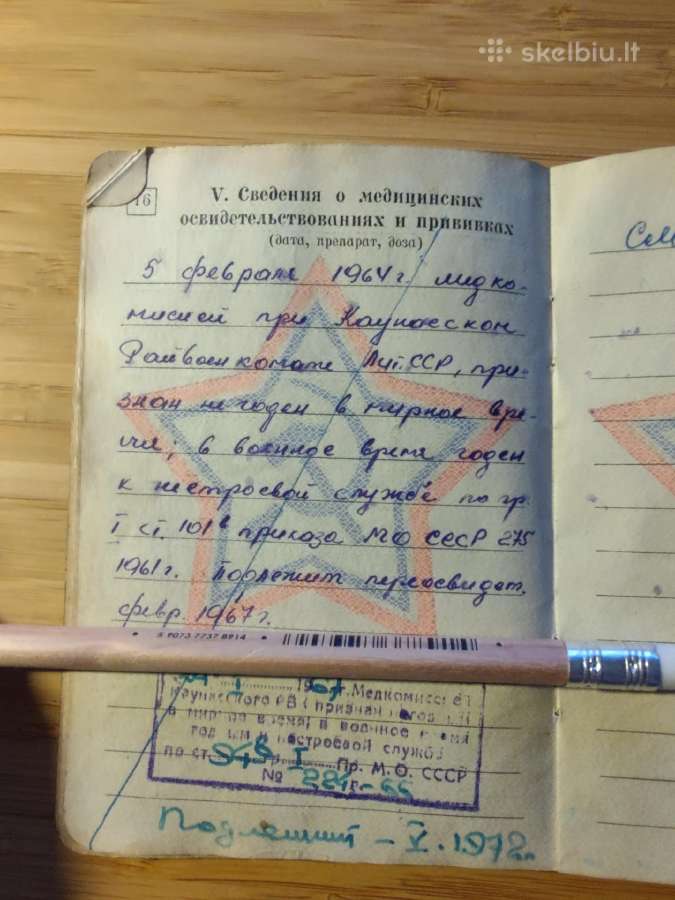 skelbiu.lt
16
V. Сведения о медицинских
освидетельствованиях и прививках
(дата, препарат, доза)
5 февраля 1964 г. медко-
мисией при Каунасском
Райвоенкомате Лит.ССР, при-
знан не годен в мирное вре-
мя; в военное время годен
к нестроевой службе по гр.
I ст. 101в приказа МО СССР 275
1961 г. Подлежит переосвидет.
февр. 1967 г.
196 г. Медкомиссией
Каунасского РВК признан негодным
в мирное время; в военное время
годным к нестроевой службе
по ст. I Пр. М.О. СССР
№ 224 г-66
Подлежит - V. 1972.
См